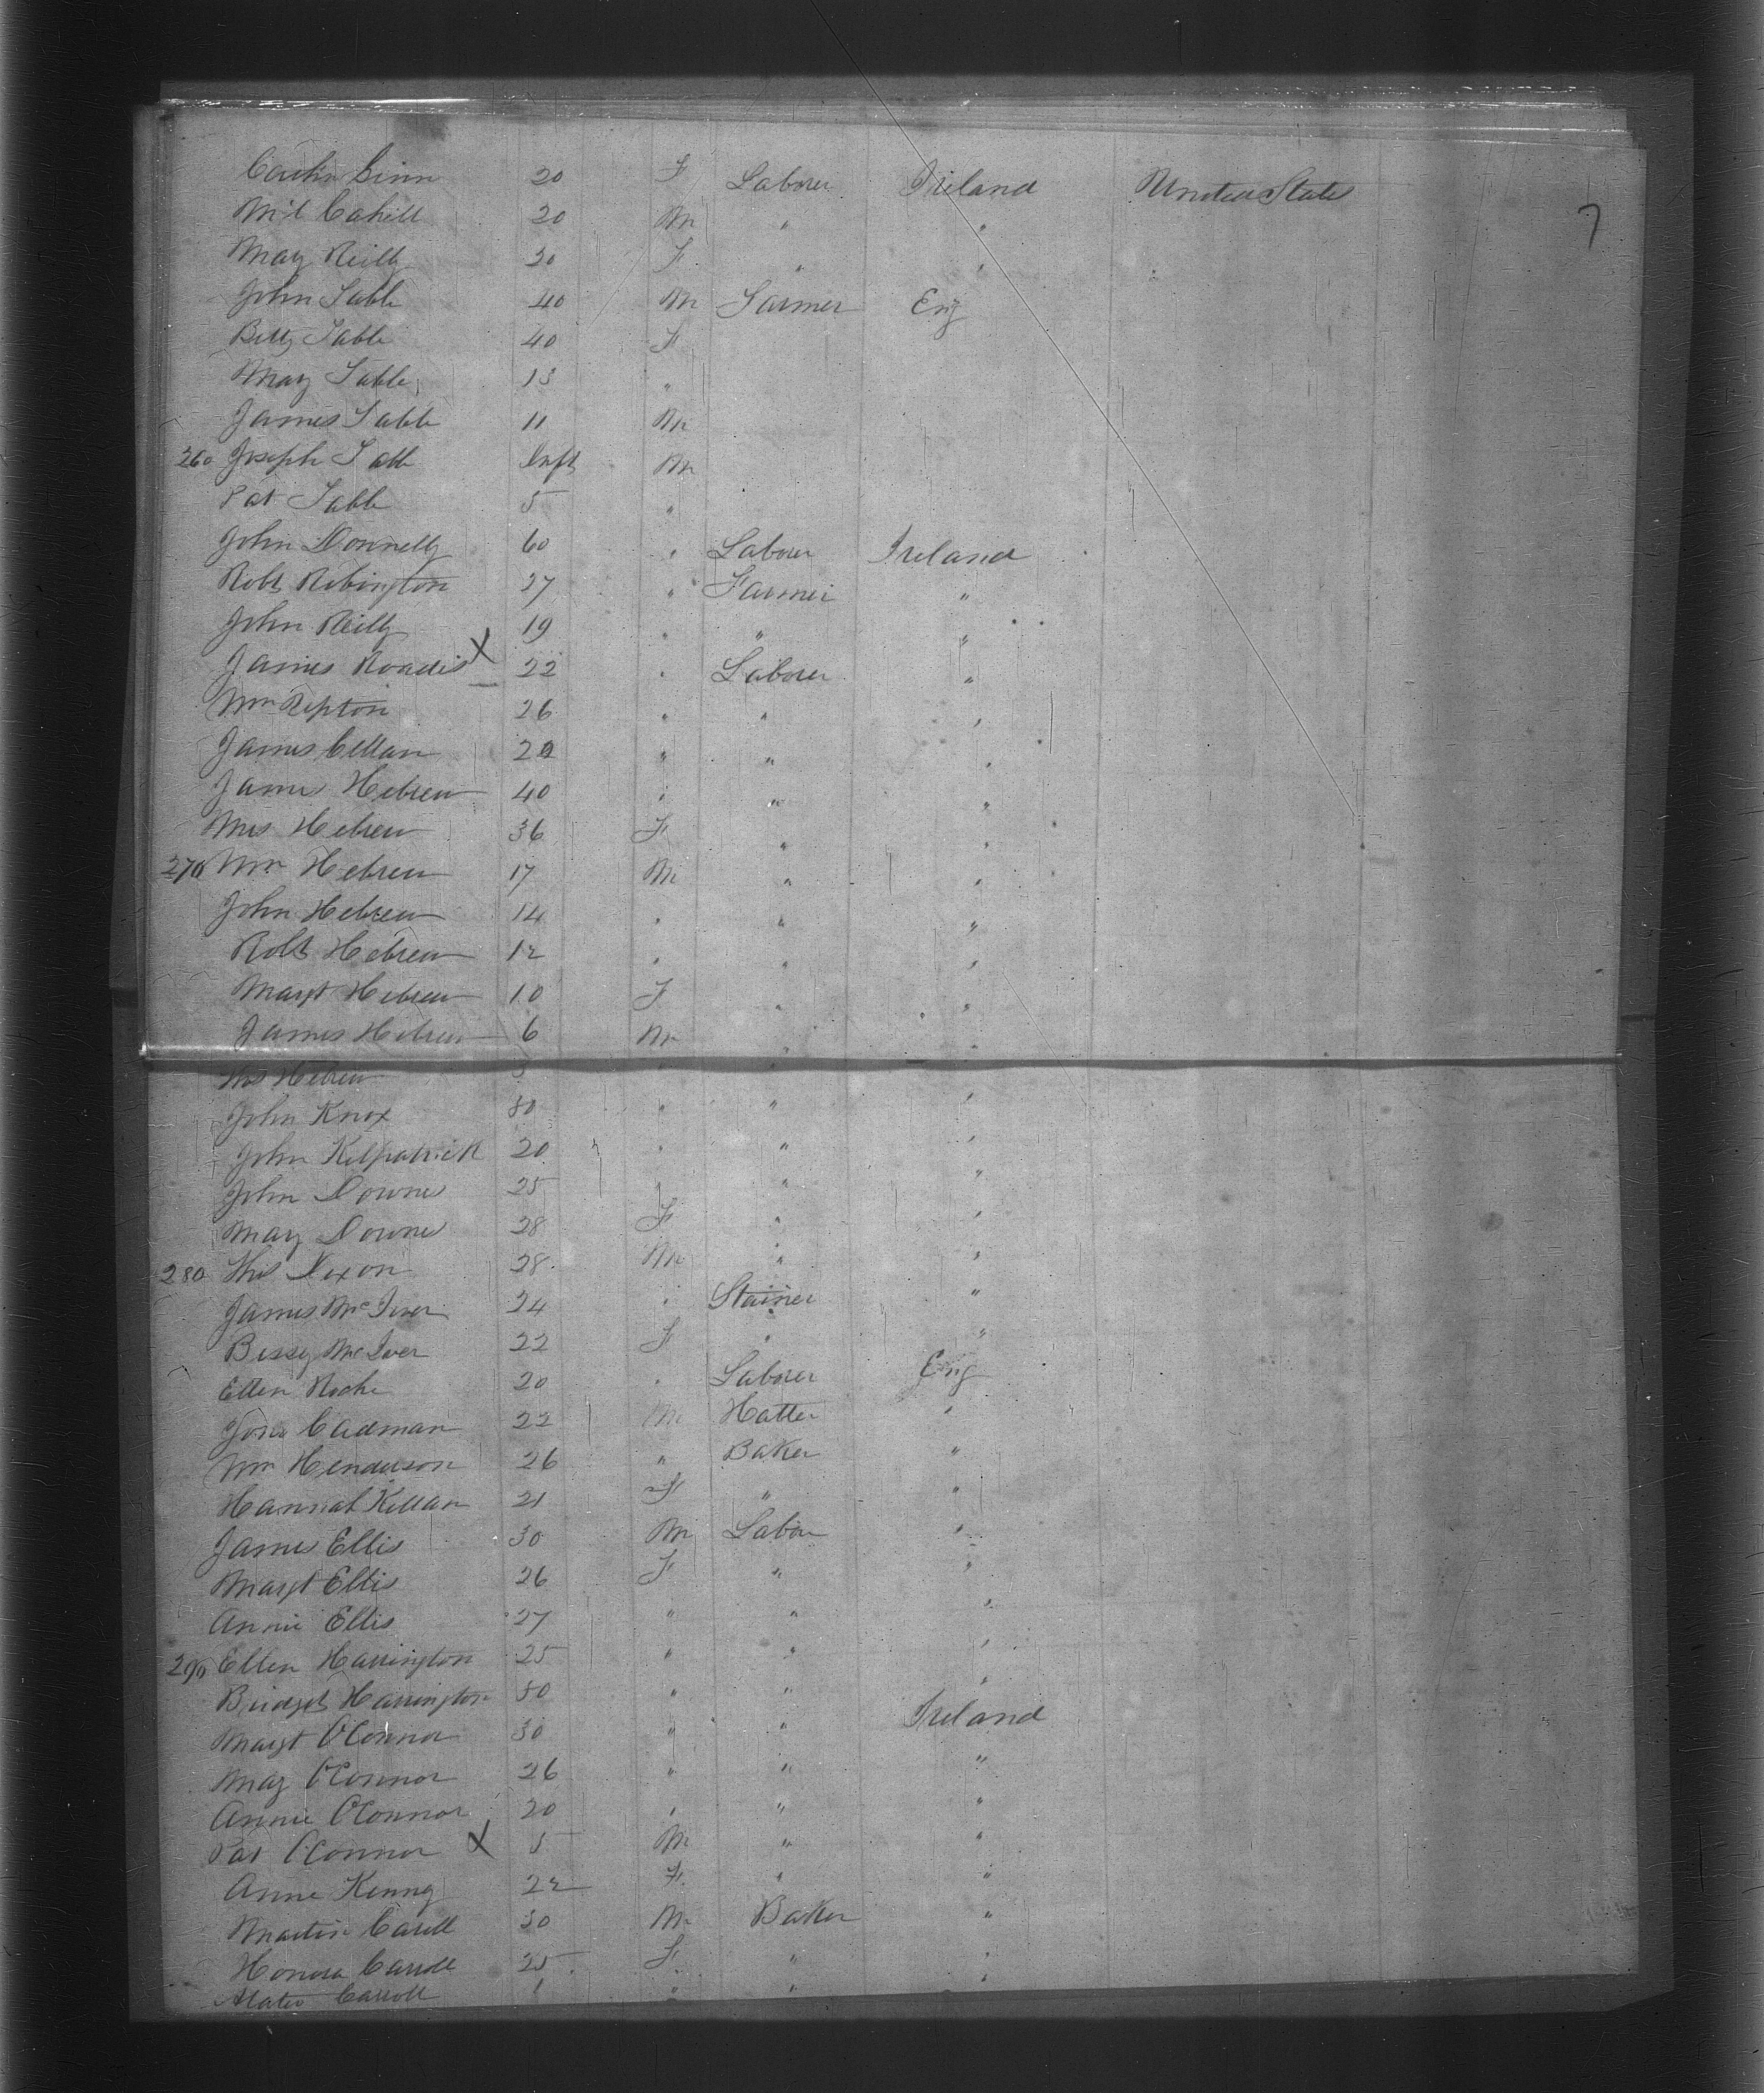 20 F Laborer Ireland United States
7
Mil Cahill 20 M " "
Mary Reilly 30 F " "
John Tabb 40 M Farmer Eng
Betty Tabb 40 F
Mary Tabb 13 "
James Tabb 11 M
260 Joseph Tabb Inft M
Pat Tabb 5 "
John Donnelly 60 " Laborer Ireland
Robt Robington 27 " Farmer "
John Reilly 19 " " "
James X 22 " Laborer "
Wm Repton 26 " " "
James Cullan 20 " " "
James Hebrew 40 " " "
Mrs Hebrew 36 F " "
270 Wm Hebrew 17 M " "
John Hebrew 14 " " "
Robt Hebrew 12 " " "
Margt Hebrew 10 F " "
James Hebrew 6 M " "
Thos Hebrew
John Knox 30 " " "
John Kilpatrick 20 " " "
John Downs 25 " " "
Mary Downs 28 F " "
280 Thos Dixon 28 M " "
James McIver 24 " Stainer "
Bessy McIver 22 F " "
Ellen Roche 20 " Laborer Eng
Cadman 22 M Hatter "
Wm Henderson 26 " Baker "
Hannah Killan 21 F " "
James Ellis 30 M Labor "
Margt Ellis 26 F " "
Annie Ellis 27 " " "
290 Ellen Harrington 25 " " "
Bridget Harrington 30 " " "
Margt O'Connor 30 " " Ireland
May O'Connor 26 " " "
Annie O'Connor 20 " " "
Pat O'Connor X 5 M " "
Anne Kenny 22 F " "
Martin Caroll 30 M Baker "
Honora Carroll 25 F " "
Carroll 1 " " "